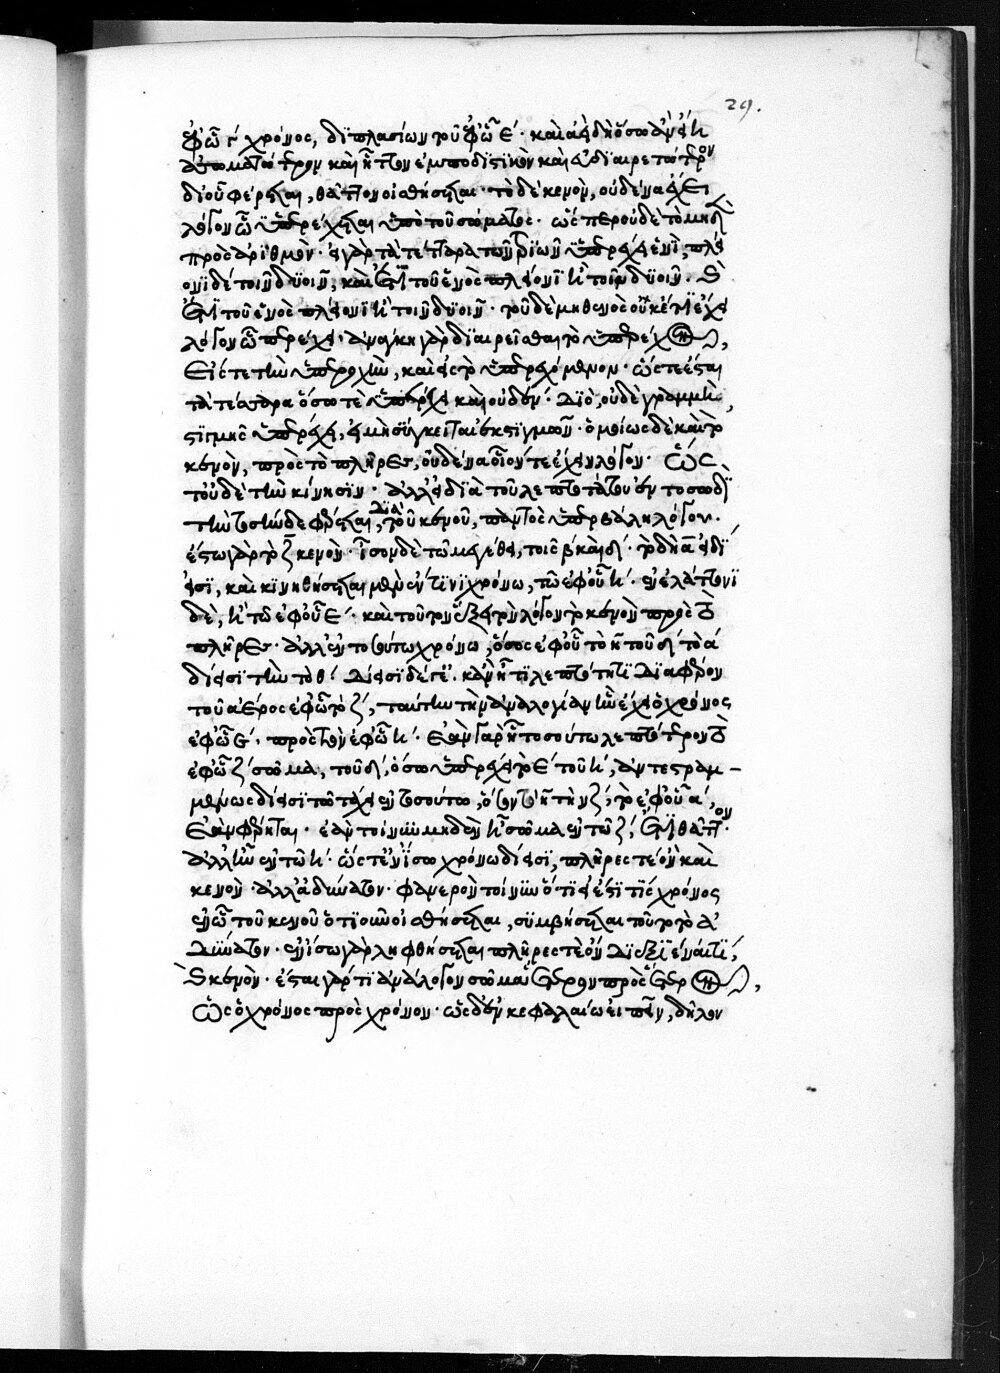 ἐφῶ γ́ χρόνος, διπλασίων τοῦ ἐφῶ ε΄· καὶ ἀεὶ δὴ ὅσω ἂν ἦ
ἀσωματώτερον καὶ ἧττον ἐμποδιστικὸν καὶ εὐδιαιρετώτερον
δι' οὗ φέρεται, θᾶττον οἰσθήσεται· τὸ δὲ κενὸν, οὐδένα ἔχει
λόγον ὧ ὑπερέχεται ὑπὸ τοῦ σώματος· ὥσπερ οὐδὲ τὸ μηδὲν
πρὸς ἀριθμὸν· εἰ γὰρ τὰ τέτταρα τῶν τριῶν ὑπερέχει ἑνὶ, πλεί
ονι δὲ τοῖν δυοῖν, καὶ ἔτι τοῦ ἑνὸς πλείονι ἢ τοῖν δυοῖν.
ἔτι τοῦ ἑνὸς πλείονι ἢ τοῖν δυοῖν· τοῦ δὲ μηθενὸς οὐκέτι ἔχει
λόγον ὧ ὑπερέχει· ἀνάγκη γὰρ διαιρεῖσθαι τὸ ὑπερέχον,
εἴς τε τὴν ὑπεροχὴν, καὶ εἰς τὸ ὑπερεχόμενον· ὥστε ἔσται
τὰ τέσσαρα ὅσω τε ὑπερέχει καὶ οὐδέν· διὸ, οὐδὲ γραμμὴ
στιγμῆς ὑπερέχει, εἰ μὴ σύγκειται ἐκ στιγμῶν· ὁμοίως δὲ καὶ τὸ
κενὸν, πρὸς τὸ πλῆρες, οὐδένα οἷόν τε ἔχειν λόγον· ὥς
τ' οὐδὲ τὴν κίνησιν· ἀλλ' εἰ διὰ τοῦ λεπτοτάτου ἐν τοσωδὶ
τὴν τοσήνδε φέρεται, διὰ τοῦ κενοῦ, παντὸς ὑπερβάλλει λόγον·
ἔστω γὰρ τὸ ζ κενὸν· ἴσον δὲ τῶ μεγέθει, τοῖς β καὶ δ΄· τὸ δὴ α εἰ δί
εισι, καὶ κινηθήσεται μὲν ἐν τινὶ χρόνω, τῶ ἐφοῦ η΄· ἐν ἐλάττονι
δὲ, ἢ τῶ ἐφοῦ ε΄· καὶ τοῦτον ἕξει τὸν λόγον τὸ κενὸν πρὸς τὸ
πλῆρες· ἀλλ' ἐν τοσούτω χρόνω, ὅσος ἐφοῦ τὸ η τοῦ δ΄ τὸ α΄
δίεισι τὴν τὸ θ΄· δίεισι δέ γε. κἂν ἦ τι λεπτότητι διαφέρον
τοῦ ἀέρος ἐφῶ τὸ ζ΄, ταύτην τὴν ἀναλογίαν ἣν ἔχει ὁ χρόνος
ἐφῶ ε΄, πρὸς τὸν ἐφῶ η΄· ἐὰν γὰρ ἦ τοσούτω λεπτότερον τὸ
ἐφῶ ζ΄ σῶμα, τοῦ δ΄, ὅσω ὑπερέχει τὸ ε΄ τοῦ η΄, ἀντεστραμ-
μένως δίεισι τῶ τάχει ἐν τοσούτω, ὅσον τὸ η τὴν ζ΄, τὸ ἐφοῦ α΄,
ἐὰν φέρηται· ἐὰν τοίνυν μηδὲν ἦ σῶμα ἐν τῶ ζ΄, ἔτι θᾶττον·
ἀλλ' ἦν ἐν τῶ η΄· ὥστ' ἐν ἴσω χρόνω δίεισι, πλῆρές τε ὂν καὶ
κενὸν· ἀλλ' ἀδύνατον· φανερὸν τοίνυν ὅτι εἰ ἔστι τις χρόνος
ἐν ὧ τοῦ κενοῦ ὁτιοῦν οἰσθήσεται, συμβήσεται τοῦτο τὸ ἀ
δύνατον· ἐν ἴσω γὰρ ληφθήσεται πλῆρές τε ὂν διεξιέναι τί,
καὶ κενὸν· ἔσται γάρ τι ἀνάλογον σῶμα ἕτερον πρὸς ἕτερον,
ὡς ὁ χρόνος πρὸς χρόνον· ὡς δ' ἐν κεφαλαίω εἰπεῖν, δῆλον
29.